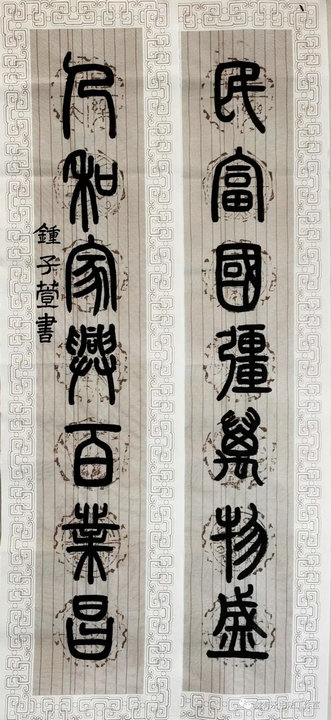 民富國彊萬物盛
人和家興百業昌
鍾子萱書